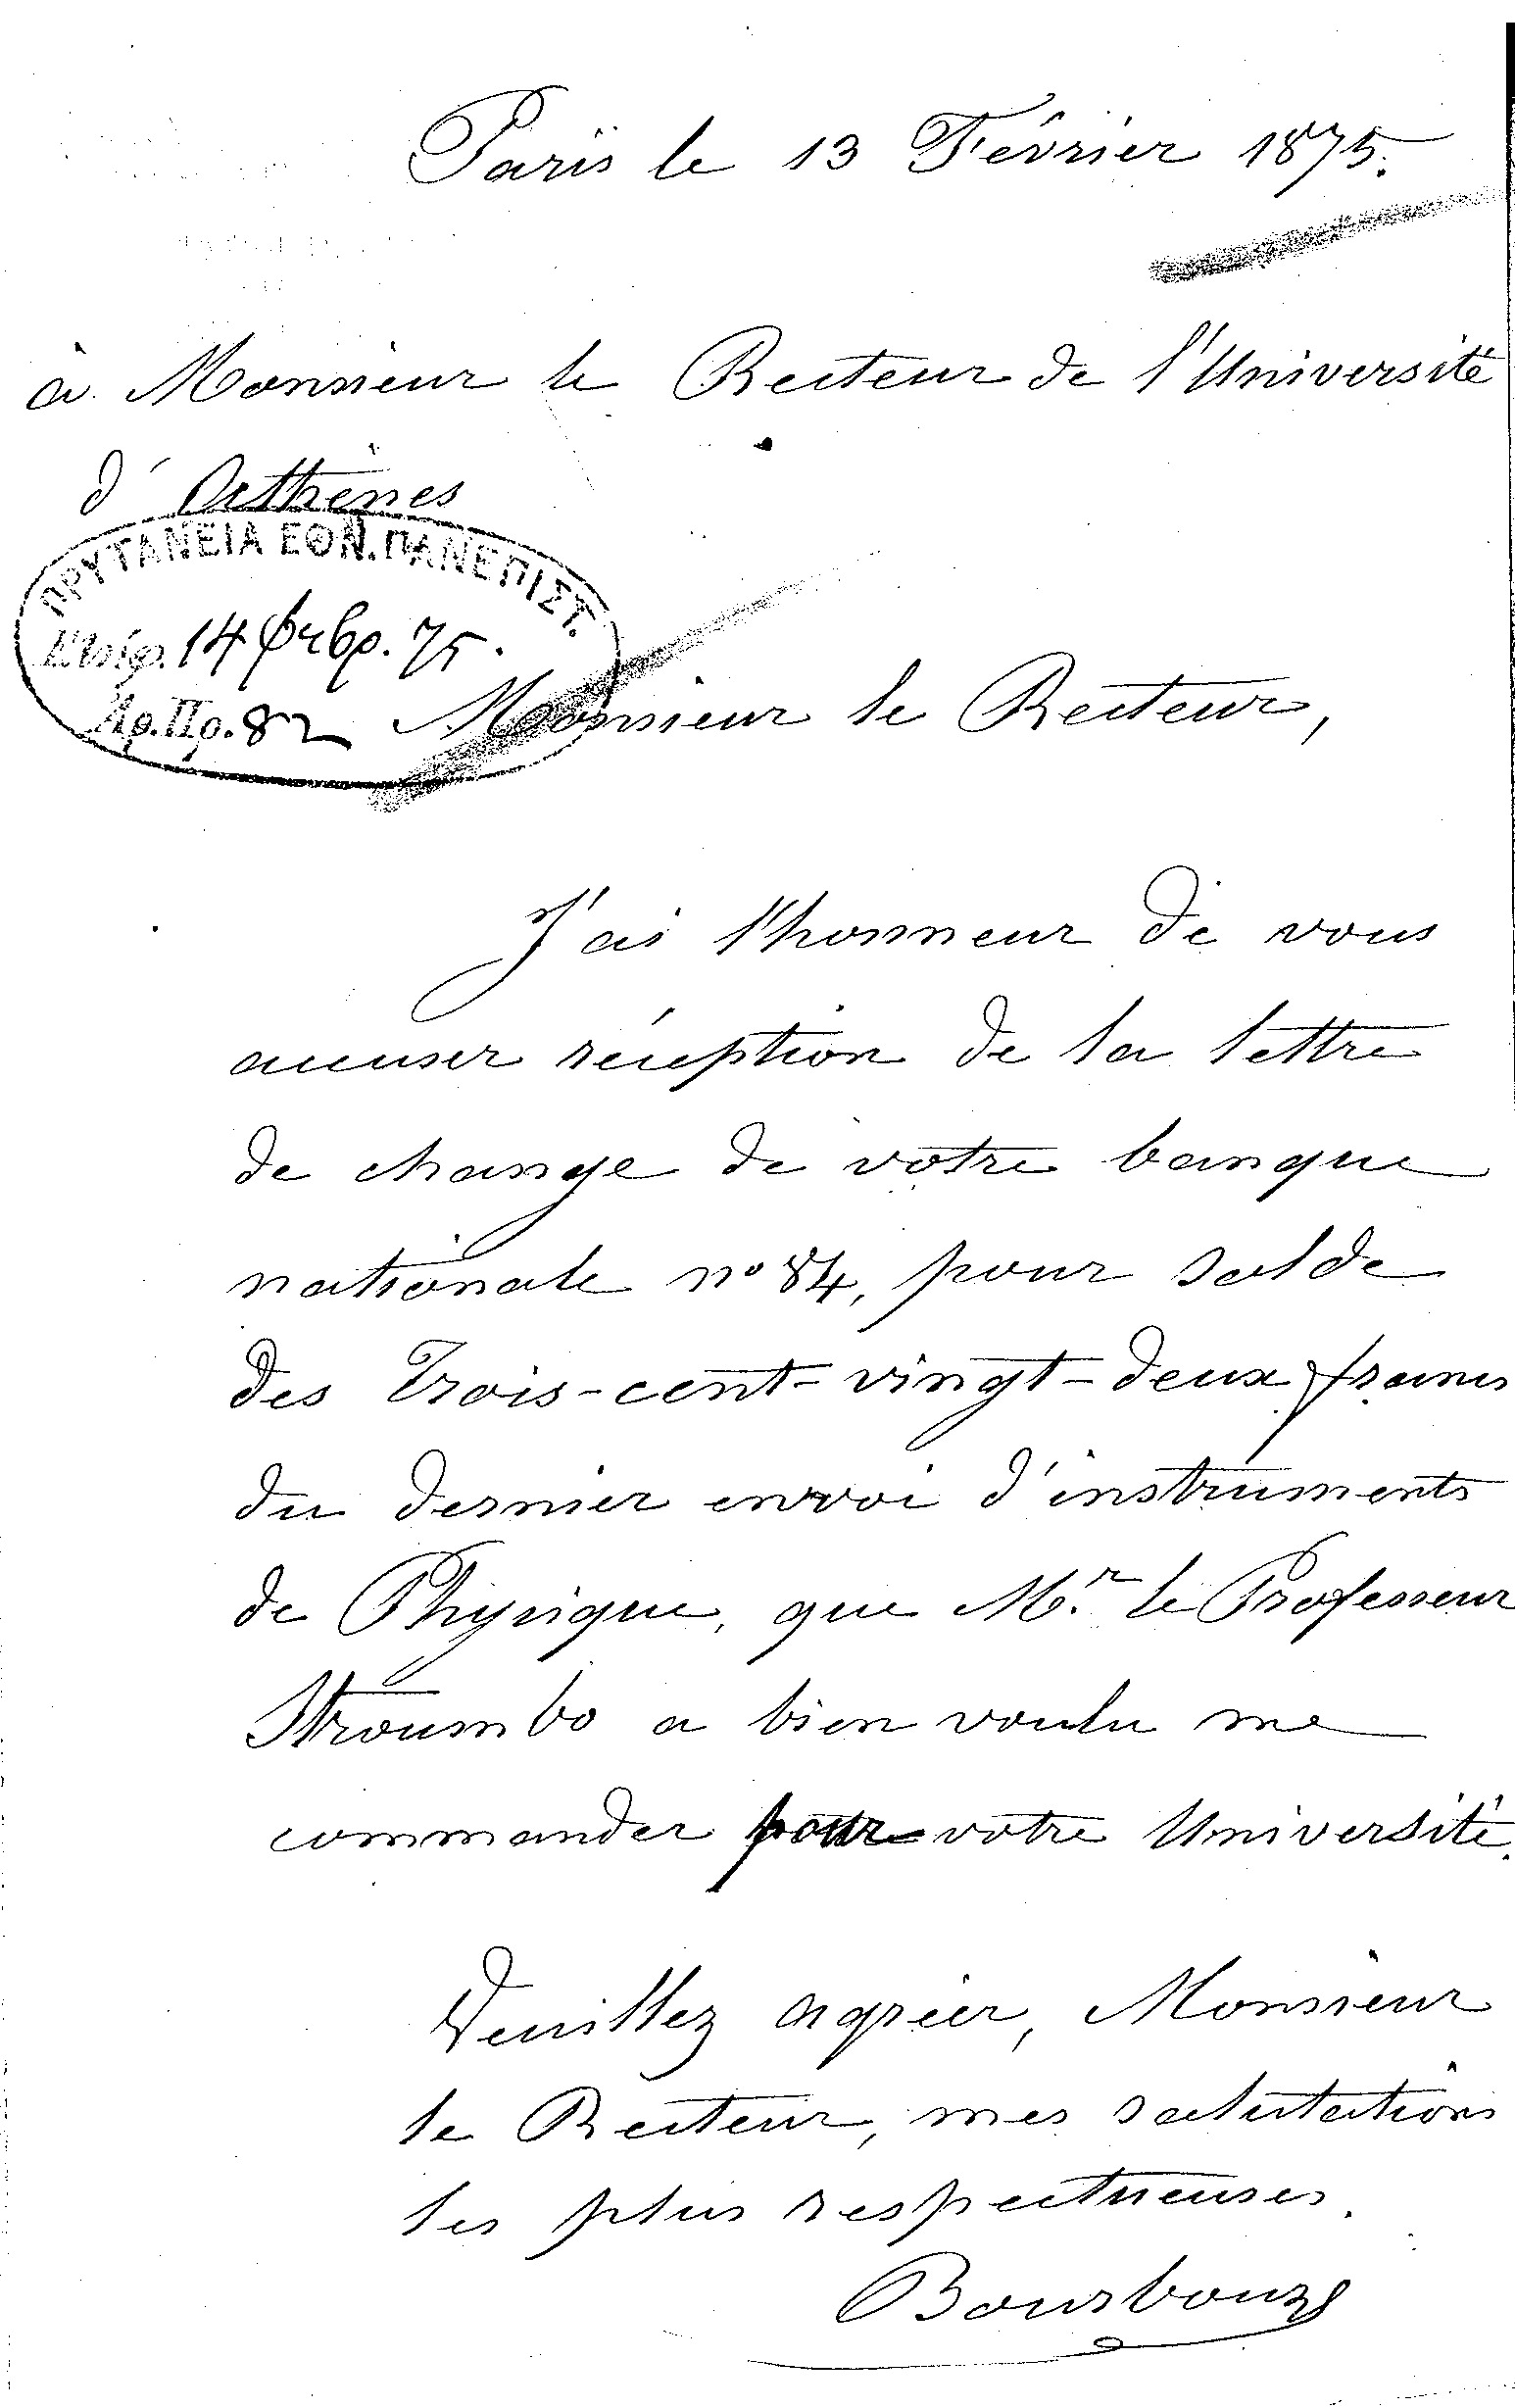 Paris le 13 Février 1875.
à Monsieur le Recteur de l'Université
d'Athènes
ΠΡΥΤΑΝΕΙΑ ΕΘΝ. ΠΑΝΕΠΙΣΤ.
14 Φεβρ. 75.
Αρ. Πρ. 82
Monsieur le Recteur,
J'ai l'honneur de vous
accuser réception de la lettre
de change de votre banque
nationale nº 84, pour solde
des Trois-cent-vingt-deux francs
du dernier envoi d'instruments
de Physique, que Mr. le Professeur
Stroumbo a bien voulu me
commander pour votre Université.
Veuillez agréer, Monsieur
le Recteur, mes salutations
les plus respectueuses.
Bourbouze